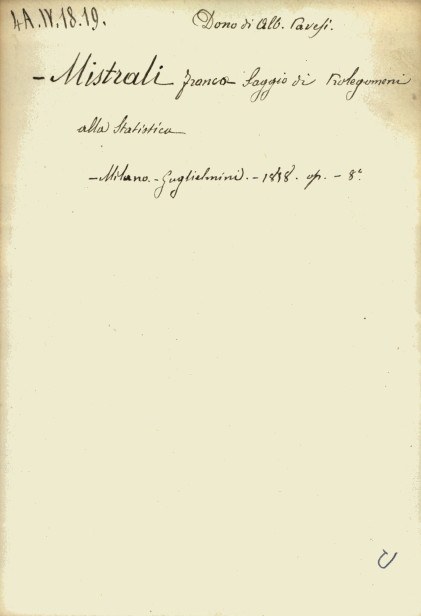 4A.IV.18.19.
Dono di Alb. Pavesi.
– Mistrali Franco Saggio di Prolegomeni
alla Statistica
– Milano. – Guglielmini. – op. – 8°